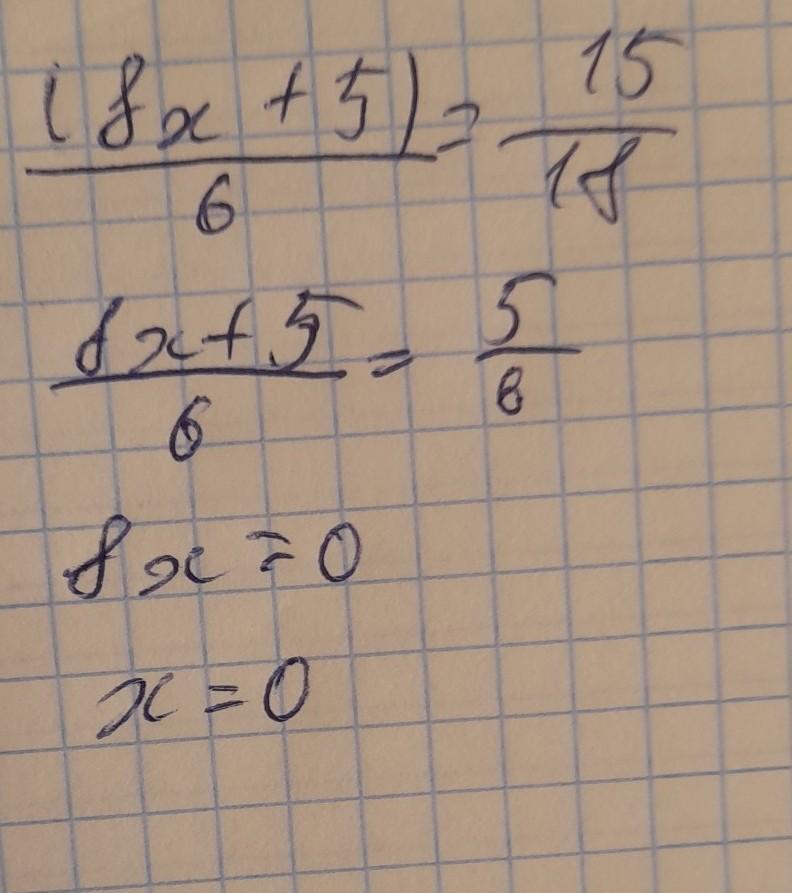 (8x + 5)/6 = 15/18
8x + 5/6 = 5/6
8x = 0
x = 0